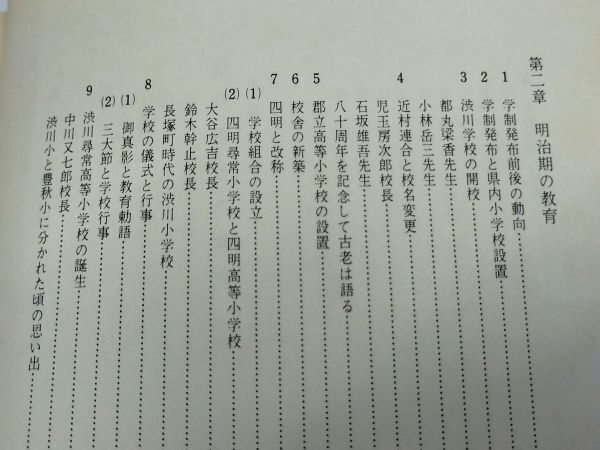 第二章 明治期の教育
1 学制発布前後の動向
2 学制発布と県内小学校設置
3 渋川学校の開校
都丸梁香先生
小林岳三先生
4 近村連合と校名変更
児玉房次郎校長
石坂雄吾先生
八十周年を記念して古老は語る
5 郡立高等小学校の設置
6 校舎の新築
7 四明と改称
(1) 学校組合の設立
(2) 四明尋常小学校と四明高等小学校
大谷広吉校長
鈴木幹止校長
長塚町時代の渋川小学校
8 学校の儀式と行事
(1) 御真影と教育勅語
(2) 三大節と学校行事
9 渋川尋常高等小学校の誕生
中川又七郎校長
渋川小と豊秋小に分かれた頃の思い出